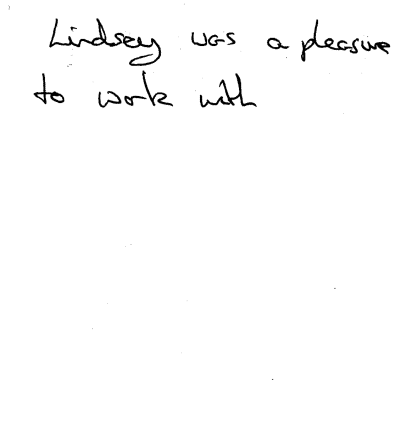 Lindsey was a pleasure
to work with